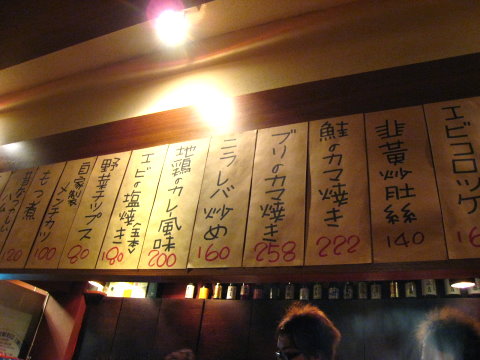 エビコロッケ
韮黄炒肚絲
140
鮭のカマ焼き
222
ブリのカマ焼き
258
ニラレバ炒め
160
地鶏のカレー風味
200
エビの塩焼き
180
野菜チップス
180
自家製
メンチカツ
80
もつ煮
100
120